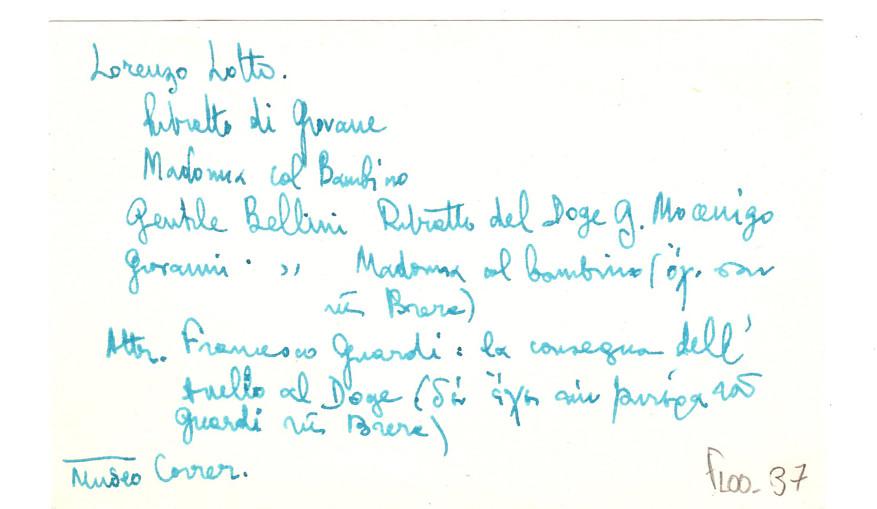 Lorenzo Lotto.
Ritratto di Giovane
Madonna col Bambino
Gentile Bellini Ritratto del Doge G. Mocenigo
Giovanni " Madonna col bambino (ὄχι σαν
τῆς Brera)
Attr. Francesco Guardi: la consegna dell'
Anello al Doge (δὲν ἔχει τοῦ
Guardi τῆς Brera)
Museo Correr.
FLOO-37